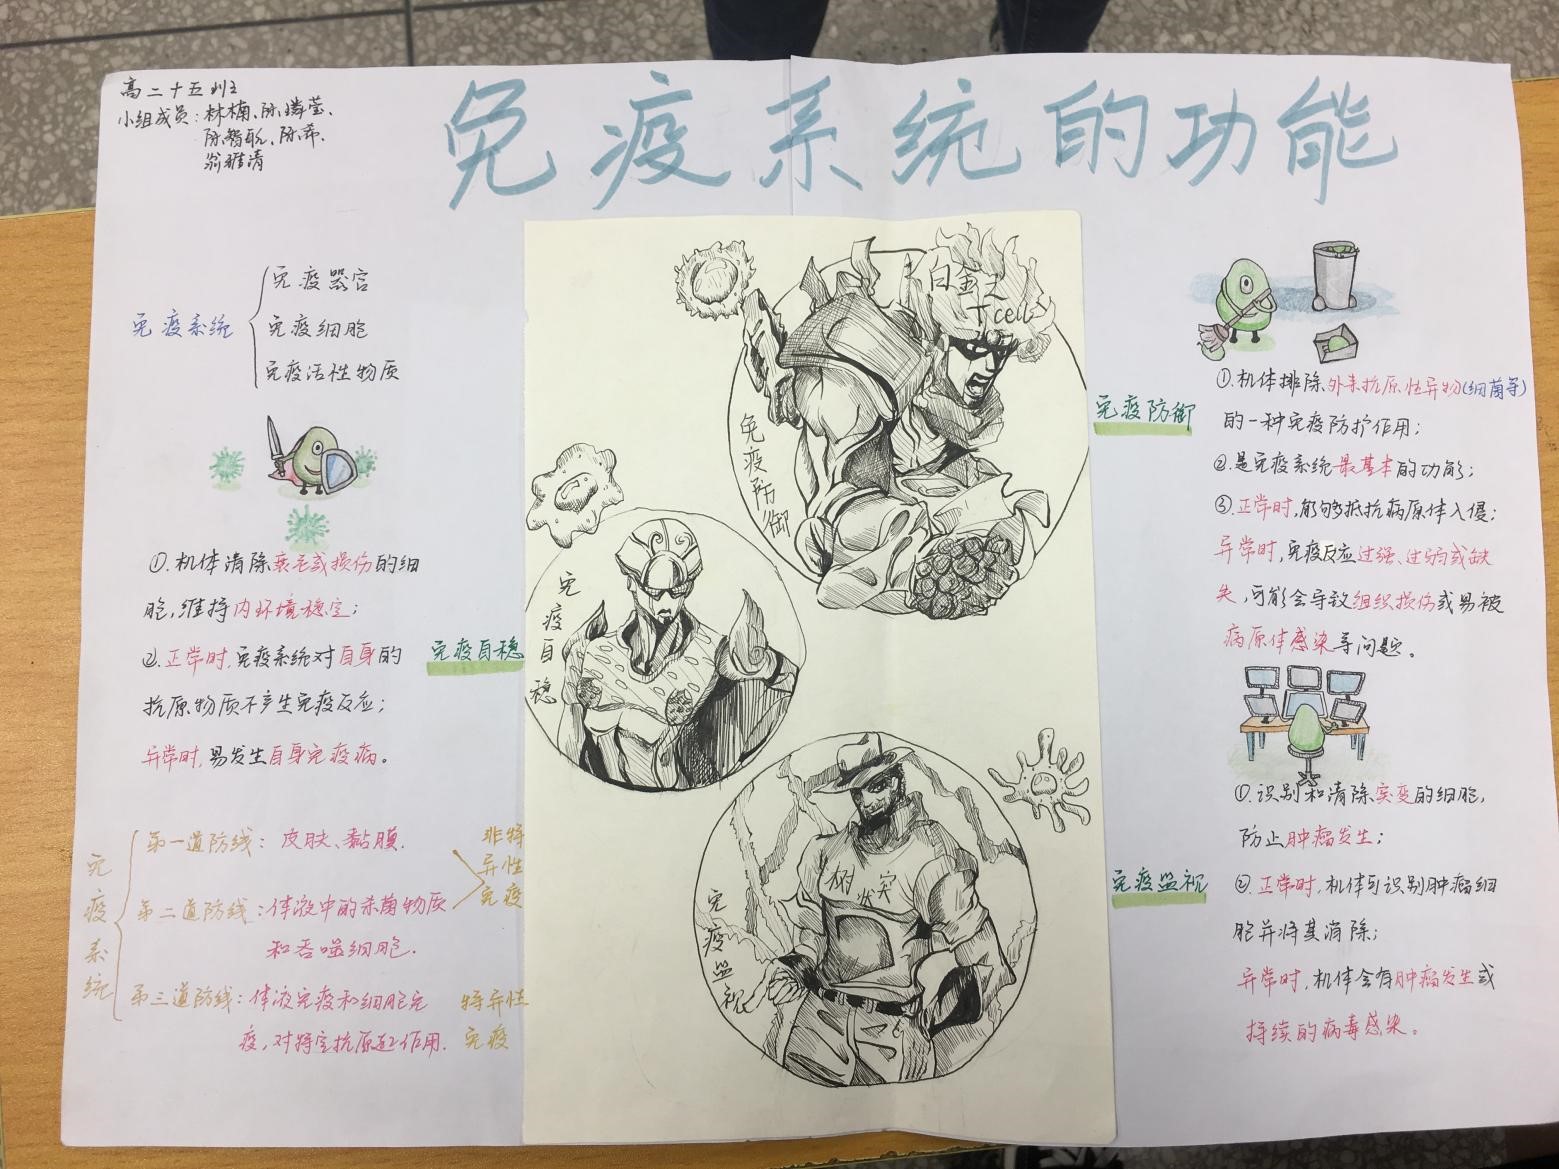 高二十五班
小组成员：林楠、陈璘莹、
陈智聪、陈希、
翁雅清
免疫系统的功能
免疫系统
免疫器官
免疫细胞
免疫活性物质
①.机体清除衰老或损伤的细
胞，维持内环境稳定；
②.正常时，免疫系统对自身的
抗原物质不产生免疫反应；
异常时，易发生自身免疫病。
免疫自稳
免疫系统
第一道防线：皮肤、黏膜.
第二道防线：体液中的杀菌物质
和吞噬细胞.
非特
异性
免疫
第三道防线：体液免疫和细胞免
疫，对特定抗原起作用.
特异性
免疫
白金之
T cell
免疫防御
免疫自稳
树
突
状
免疫监视
免疫防御
①.机体排除外来抗原性异物(细菌等)
的一种免疫防护作用；
②.是免疫系统最基本的功能；
③.正常时，能够抵抗病原体入侵；
异常时，免疫反应过强、过弱或缺
失，可能会导致组织损伤或易被
病原体感染等问题。
免疫监视
①.识别和清除突变的细胞，
防止肿瘤发生；
②.正常时，机体可识别肿瘤细
胞并将其消除；
异常时，机体会有肿瘤发生或
持续的病毒感染。